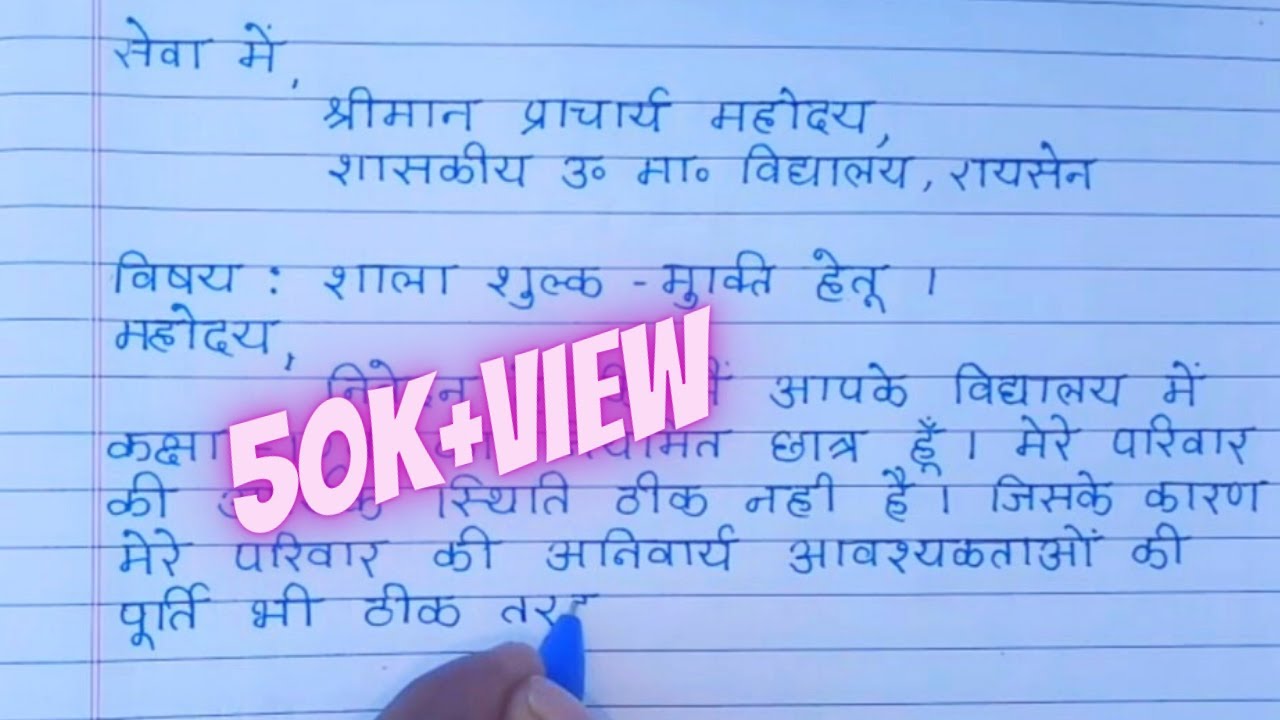 सेवा में,
श्रीमान प्राचार्य महोदय,
शासकीय उ० मा० विद्यालय, रायसेन
विषय : शाला शुल्क - मुक्ति हेतू ।
महोदय,
आपके विद्यालय में
कक्षा छात्र हूँ । मेरे परिवार
की स्थिति ठीक नही है । जिसके कारण
मेरे परिवार की अनिवार्य आवश्यकताओं की
पूर्ति भी ठीक
50K+VIEW